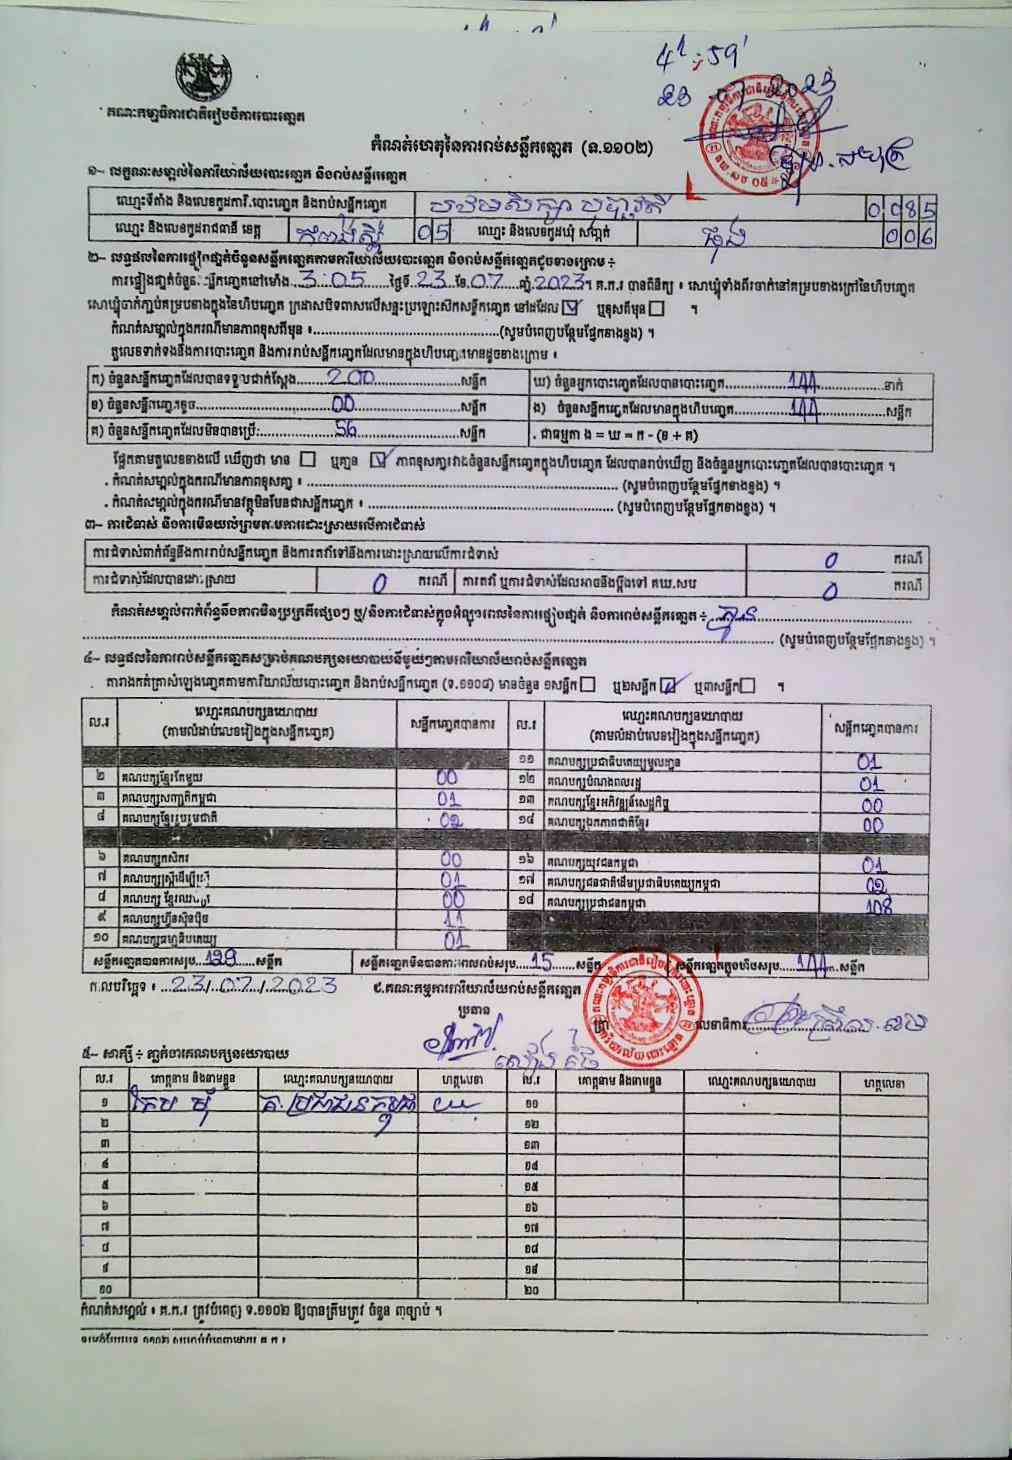 4 1 : 59'
23 - 07 2023
គណៈកម្មាធិការជាតិរៀបចំការបោះឆ្នោត
កំណត់ហេតុនៃការរាប់សន្លឹកឆ្នោត (ទ.១១០២)
១- លក្ខណៈសម្គាល់នៃការិយាល័យបោះឆ្នោត និងរាប់សន្លឹកឆ្នោត
ឈ្មោះទីតាំង និងលេខកូដការិ.បោះឆ្នោត និងរាប់សន្លឹកឆ្នោត បឋមសិក្សា 0085
ឈ្មោះ និងលេខកូដរាជធានី ខេត្ត កំពង់ស្ពឺ 05 ឈ្មោះ និងលេខកូដឃុំ សង្កាត់ 006
២- លទ្ធផលនៃការផ្ទៀងផ្ទាត់ចំនួនសន្លឹកឆ្នោតតាមការិយាល័យបោះឆ្នោត និងរាប់សន្លឹកឆ្នោតដូចខាងក្រោម ÷
ការផ្ទៀងផ្ទាត់ចំនួនសន្លឹកឆ្នោតនៅម៉ោង 3:05 ថ្ងៃទី 23 ខែ 07 ឆ្នាំ 2023។ គ.ក.រ បានពិនិត្យ ៖ សោឃ្លុំទាំងពីរចាក់នៅគម្របខាងក្រៅនៃហិបឆ្នោត
សោឃ្លុំចាក់ភ្ជាប់គម្របខាងក្នុងនៃហិបឆ្នោត ក្រដាសបិទពាសលើសន្ទះប្រឡោះស៊កសន្លឹកឆ្នោត នៅដដែល ☑ ឬខុសពីមុន ☐ ។
កំណត់សម្គាល់ក្នុងករណីមានភាពខុសពីមុន ៖ (សូមបំពេញបន្ថែមផ្នែកខាងខ្នង) ។
តួលេខទាក់ទងនឹងការបោះឆ្នោត និងការរាប់សន្លឹកឆ្នោតដែលមានក្នុងហិបឆ្នោតមានដូចខាងក្រោម ៖
ក) ចំនួនសន្លឹកឆ្នោតដែលបានទទួលជាក់ស្តែង 200 សន្លឹក ឃ) ចំនួនអ្នកបោះឆ្នោតដែលបានបោះឆ្នោត 144 នាក់
ខ) ចំនួនសន្លឹកឆ្នោតខូច 00 សន្លឹក ង) ចំនួនសន្លឹកឆ្នោតដែលមានក្នុងហិបឆ្នោត 144 សន្លឹក
គ) ចំនួនសន្លឹកឆ្នោតដែលមិនបានប្រើ 56 សន្លឹក . ជាធម្មតា ង = ឃ = ក - (ខ + គ)
ផ្អែកតាមតួលេខខាងលើ ឃើញថា មាន ☐ ឬគ្មាន ☑ ភាពខុសគ្នារវាងចំនួនសន្លឹកឆ្នោតក្នុងហិបឆ្នោត ដែលបានរាប់ឃើញ និងចំនួនអ្នកបោះឆ្នោតដែលបានបោះឆ្នោត ។
. កំណត់សម្គាល់ក្នុងករណីមានភាពខុសគ្នា ៖ (សូមបំពេញបន្ថែមផ្នែកខាងខ្នង) ។
. កំណត់សម្គាល់ក្នុងករណីមានវត្ថុមិនមែនជាសន្លឹកឆ្នោត ៖ (សូមបំពេញបន្ថែមផ្នែកខាងខ្នង) ។
៣- ការជំទាស់ និងការមិនយល់ព្រមតាមការដោះស្រាយលើការជំទាស់
ការជំទាស់ពាក់ព័ន្ធនឹងការរាប់សន្លឹកឆ្នោត និងការតវ៉ាទៅនឹងការដោះស្រាយលើការជំទាស់ 0 ករណី
ការជំទាស់ដែលបានដោះស្រាយ 0 ករណី ការតវ៉ា ឬការជំទាស់ដែលអាចនឹងប្តឹងទៅ គឃ.សប 0 ករណី
កំណត់សម្គាល់ពាក់ព័ន្ធនឹងភាពមិនប្រក្រតីផ្សេងៗ ឬ/និងការជំទាស់ក្នុងអំឡុងពេលនៃការផ្ទៀងផ្ទាត់ និងការរាប់សន្លឹកឆ្នោត ÷ គ្មាន
(សូមបំពេញបន្ថែមផ្នែកខាងខ្នង) ។
៤- លទ្ធផលនៃការរាប់សន្លឹកឆ្នោតសម្រាប់គណបក្សនយោបាយនីមួយៗតាមការិយាល័យរាប់សន្លឹកឆ្នោត
តារាងកត់ត្រាសំឡេងឆ្នោតតាមការិយាល័យបោះឆ្នោត និងរាប់សន្លឹកឆ្នោត (ទ.១១០៨) មានចំនួន ១សន្លឹក ☐ ឬ២សន្លឹក ☑ ឬ៣សន្លឹក ☐ ។
ល.រ ឈ្មោះគណបក្សនយោបាយ (តាមលំដាប់លេខរៀងក្នុងសន្លឹកឆ្នោត) សន្លឹកឆ្នោតបានការ ល.រ ឈ្មោះគណបក្សនយោបាយ (តាមលំដាប់លេខរៀងក្នុងសន្លឹកឆ្នោត) សន្លឹកឆ្នោតបានការ
១១ គណបក្សប្រជាធិបតេយ្យមូលដ្ឋាន 01
២ គណបក្សខ្មែរតែមួយ 00 ១២ គណបក្សបំណងពលរដ្ឋ 01
៣ គណបក្សសញ្ជាតិកម្ពុជា 01 ១៣ គណបក្សខ្មែរអភិវឌ្ឍន៍សេដ្ឋកិច្ច 00
៤ គណបក្សខ្មែររួបរួមជាតិ 02 ១៤ គណបក្សឯកភាពជាតិខ្មែរ 00
៦ គណបក្សកសិករ 00 ១៦ គណបក្សយុវជនកម្ពុជា 01
៧ គណបក្សស្ត្រីដើម្បីស្ត្រី 01 ១៧ គណបក្សជនជាតិដើមប្រជាធិបតេយ្យកម្ពុជា 02
៨ គណបក្ស ខ្មែរឈប់ក្រ 00 ១៨ គណបក្សប្រជាជនកម្ពុជា 108
៩ គណបក្សហ៊្វុនស៊ិនប៉ិច 11
១០ គណបក្សធម្មាធិបតេយ្យ 01
សន្លឹកឆ្នោតបានការសរុប 129 សន្លឹក សន្លឹកឆ្នោតមិនបានការរាប់សរុប 15 សន្លឹក សន្លឹកឆ្នោតក្នុងហិបសរុប 144 សន្លឹក
កាលបរិច្ឆេទ ៖ 23/07/2023 ជ.គណៈកម្មការការិយាល័យរាប់សន្លឹកឆ្នោត
ប្រធាន លេខាធិការ
៥- សាក្សី ÷ ភ្នាក់ងារគណបក្សនយោបាយ
ល.រ គោត្តនាម និងនាមខ្លួន ឈ្មោះគណបក្សនយោបាយ ហត្ថលេខា ល.រ គោត្តនាម និងនាមខ្លួន ឈ្មោះគណបក្សនយោបាយ ហត្ថលេខា
១ គ.ប្រជាជនកម្ពុជា ១១
២ ១២
៣ ១៣
៤ ១៤
៥ ១៥
៦ ១៦
៧ ១៧
៨ ១៨
៩ ១៩
១០ ២០
កំណត់សម្គាល់ ៖ គ.ក.រ ត្រូវបំពេញ ទ.១១០២ ឱ្យបានត្រឹមត្រូវ ចំនួន ៣ច្បាប់ ។